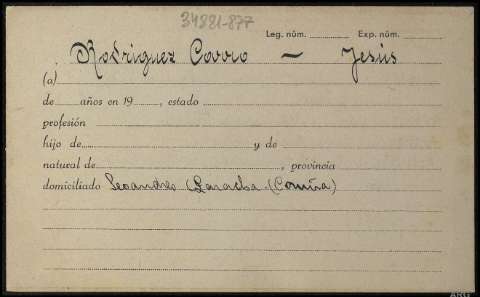 34881-877
Leg. núm. Exp. núm.
Rodriguez Covoro — Jesús
(a)
de años en 19 , estado
profesión
hijo de y de
natural de , provincia
domiciliado Leoandres (Laracha (Coruña)
ARG